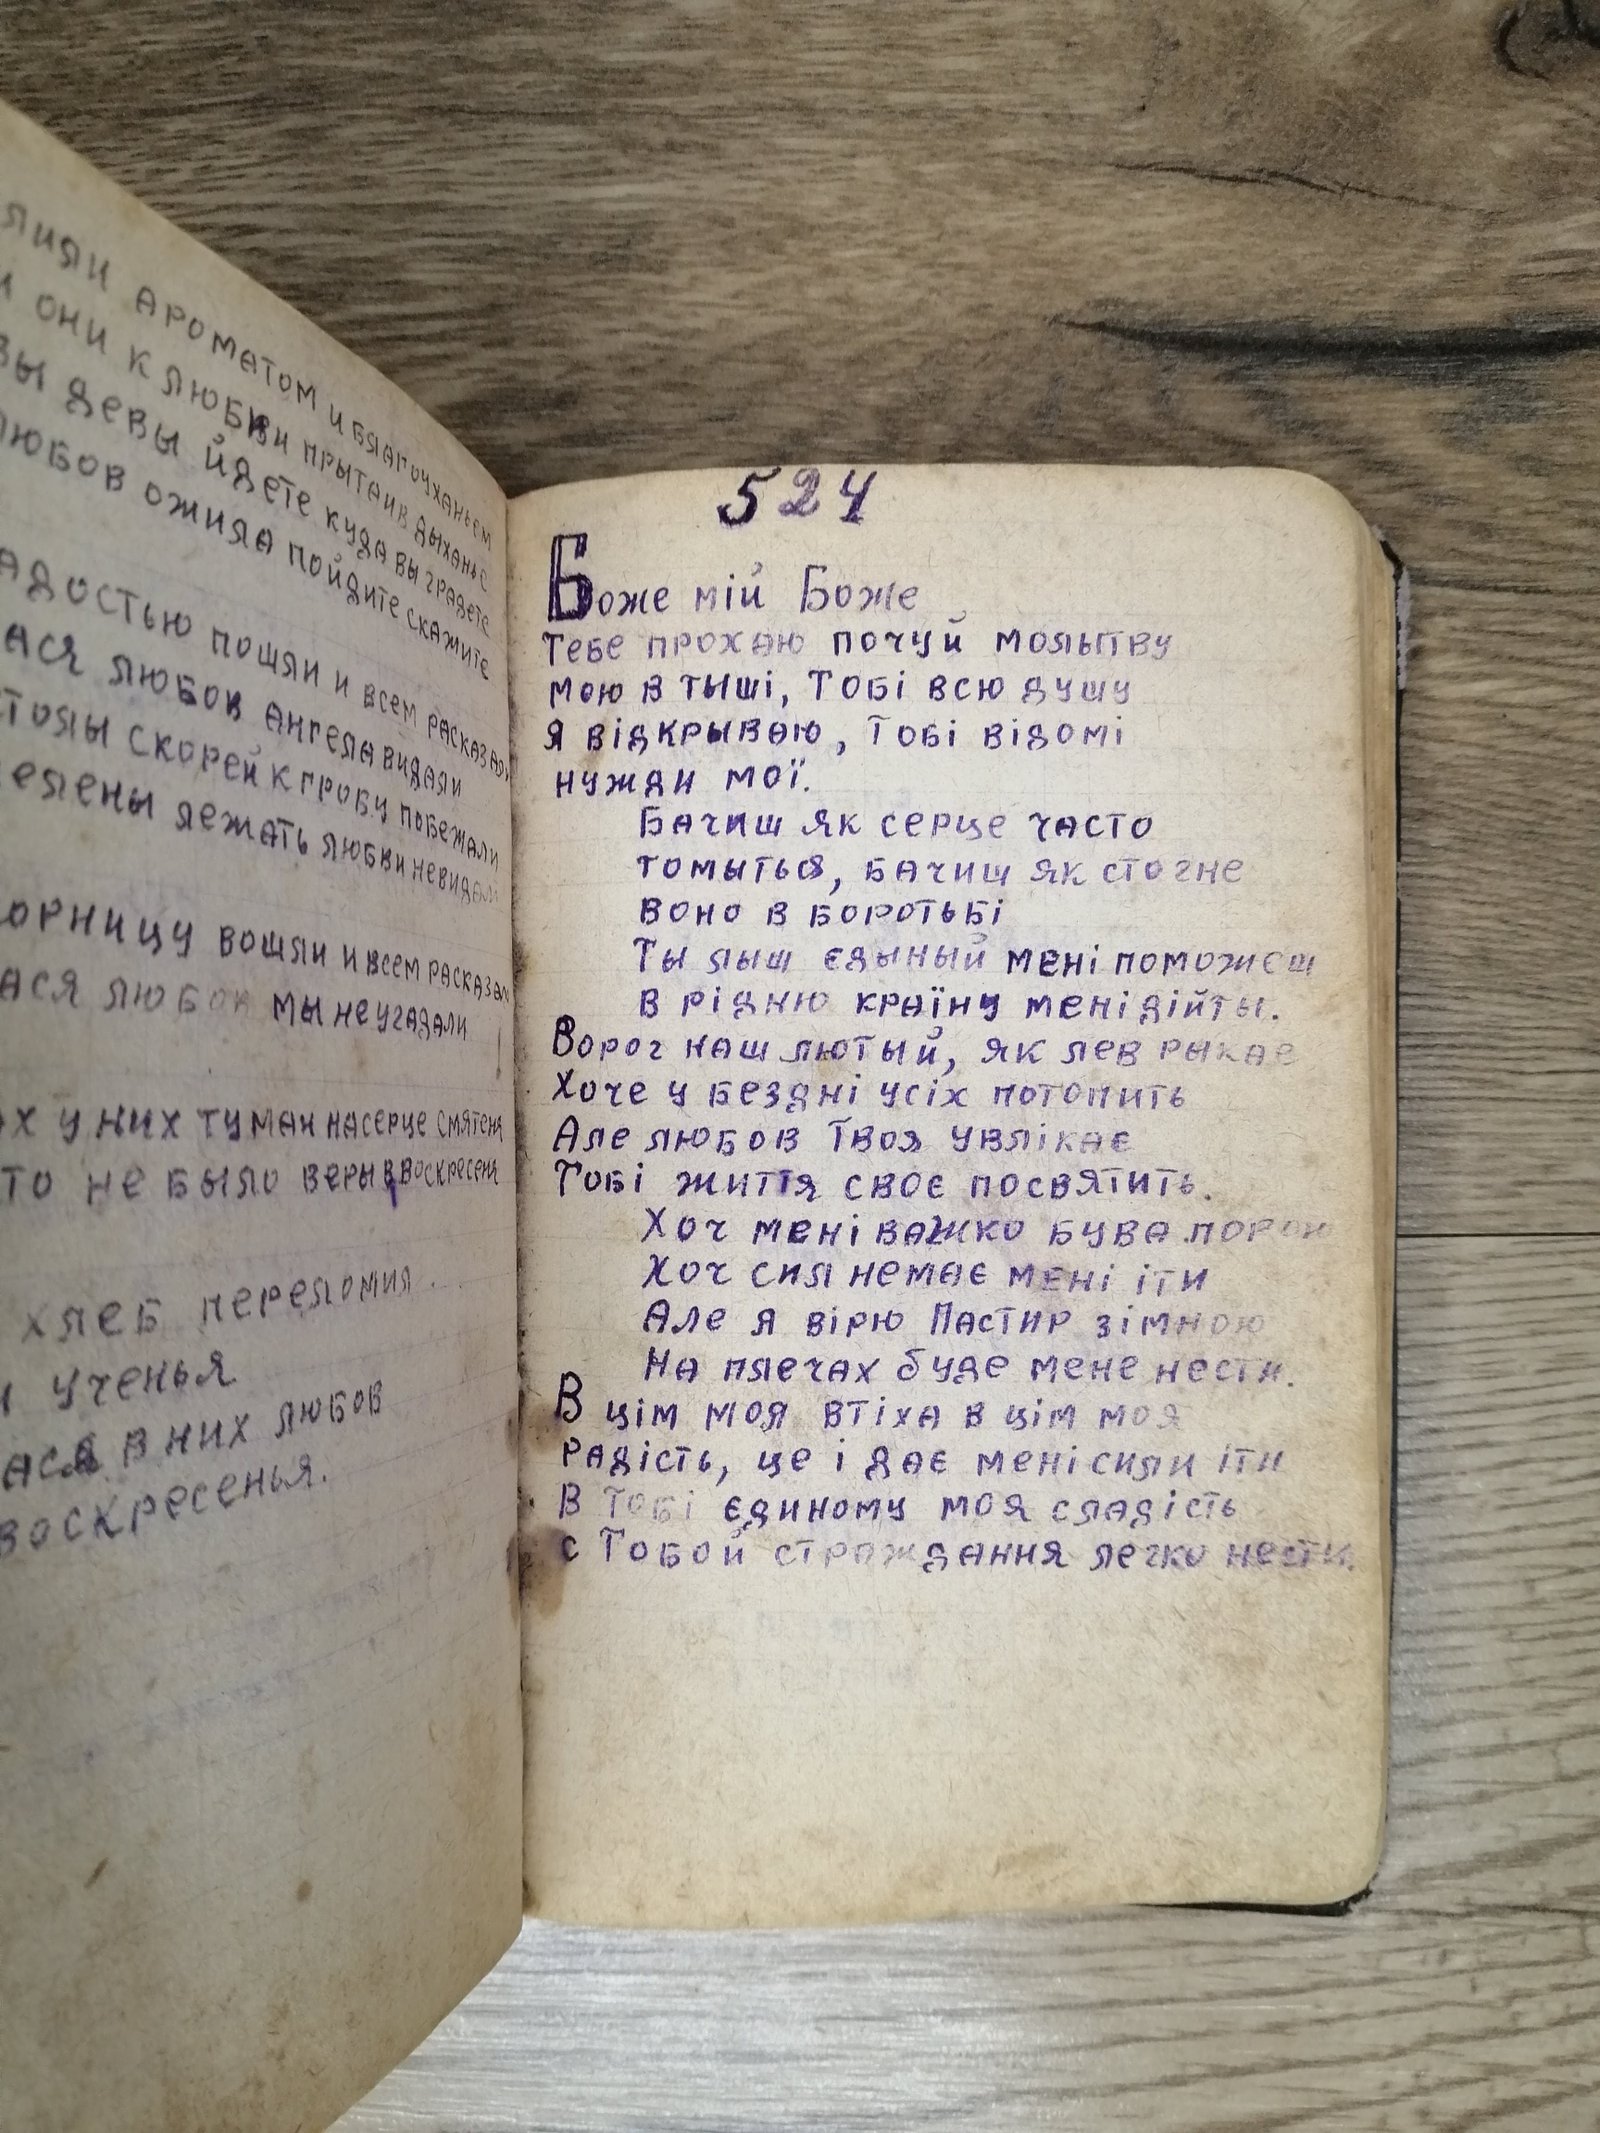 лияли ароматом и благоуханьем
они к любви прытаив дыханье
девы йдете куда вы градете
любов ожила пойдите скажите
адостью пошли и всем расказали
ася любов ангела видали
столы скорей к гробу побежали
пелены лежать любви невидали
горницу вошли и всем расказали
ася любов мы не угадали
ах у них туман на серце смятеня
то не было веры в воскресеня
хлеб переломил
и ученья
ася в них любов
воскресенья.
524
Боже мій Боже
Тебе прохаю почуй мольтву
мою в тыші, Тобі всю душу
я відкрываю, Тобі відомі
нужди мої.
Бачиш як серце часто
томыться, бачиш як стогне
воно в боротьбі
Ты лыш єдыный мені поможеш
в рідню країну мені дійты.
Ворог наш лютый, як лев рыкає
Хоче у бездні усіх потопить
Але любов Твоя увлікає
Тобі життя своє посвятить.
Хоч мені важко бува порою
Хоч сил немає мені іти
Але я вірю Пастир зімною
На плечах буде мене нести.
В цім моя втіха в цім моя
радість, це і дає мені сили іти
в Тобі єдиному моя сладість
с Тобой страждання легко нести.